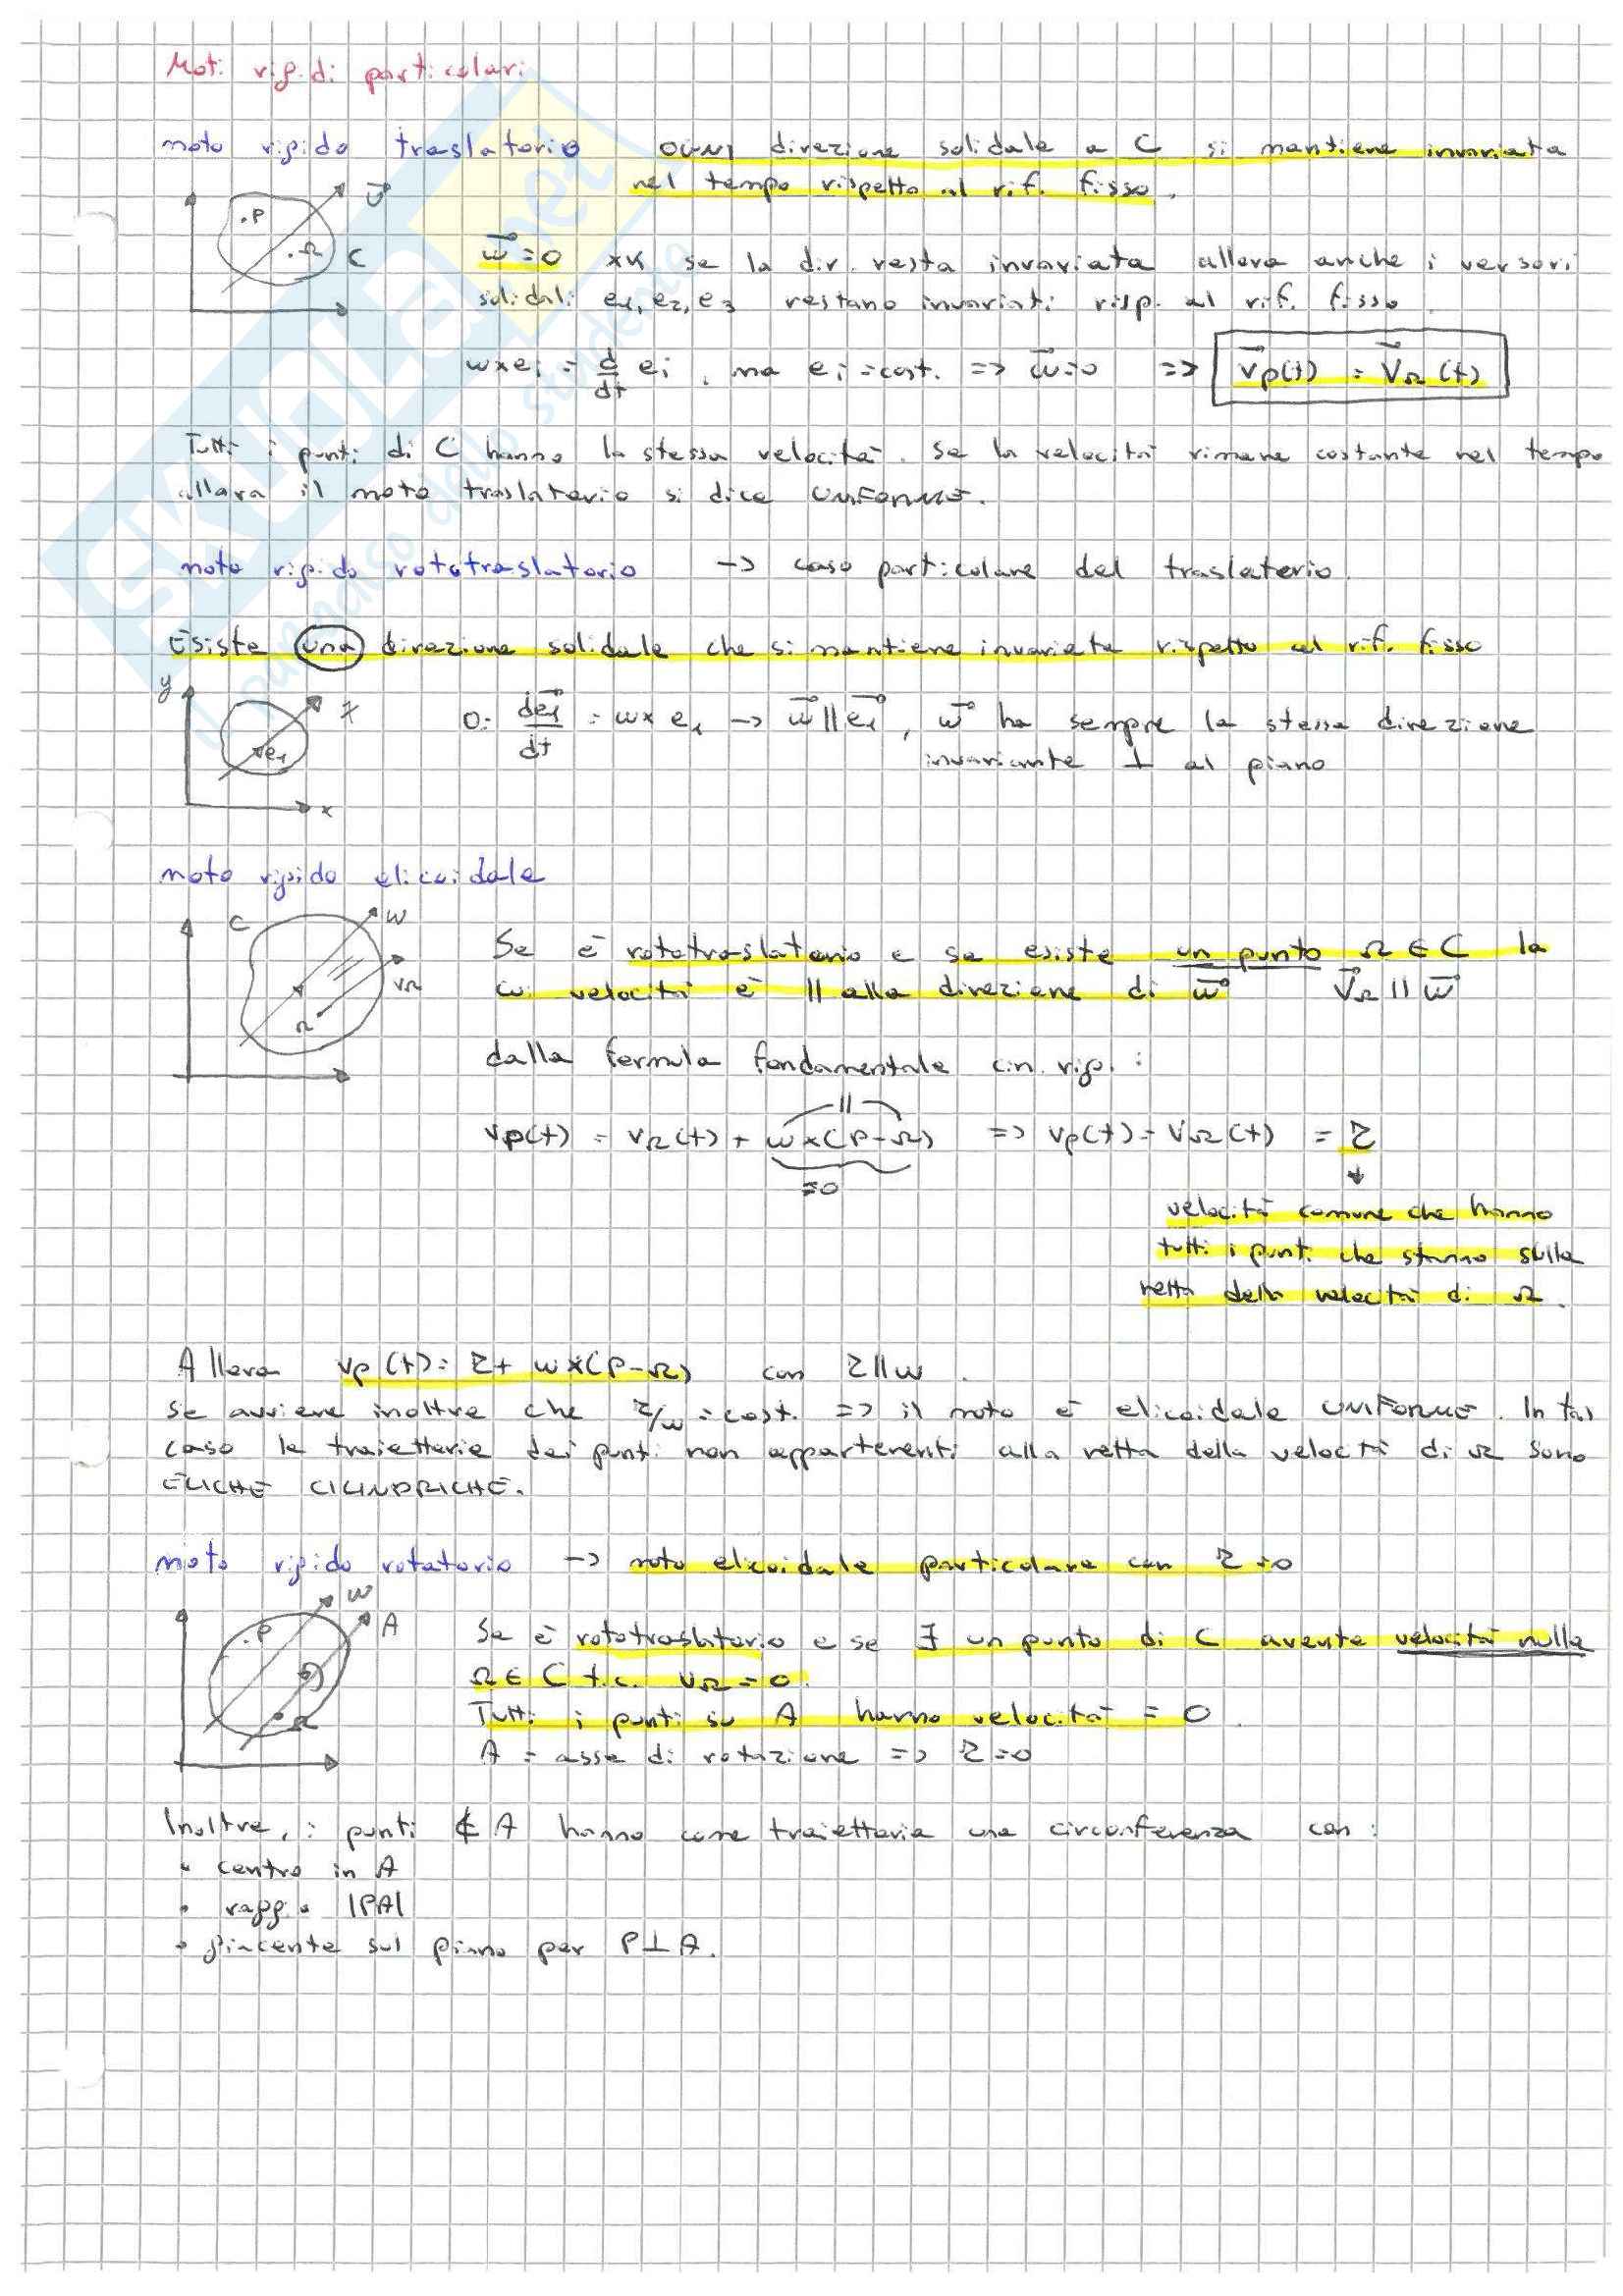 Moti rigidi particolari
moto rigido traslatorio OGNI direzione solidale a C si mantiene invariata
nel tempo rispetto al rif. fisso.
.P
.Ω C
w⃗=0 xk se la dir. resta invariata allora anche i versori
solidali e1, e2, e3 restano invariati risp. al rif. fisso.
w×ei = d/dt ei, ma ei=cost. => w⃗=0 => v⃗p(t) = v⃗Ω(t)
Tutti i punti di C hanno la stessa velocità. Se la velocità rimane costante nel tempo
allora il moto traslatorio si dice UNIFORME.
moto rigido rototraslatorio -> caso particolare del traslatorio.
Esiste una direzione solidale che si mantiene invariata rispetto al rif. fisso
y
z
e1
x
0= de⃗1/dt = w×e1 -> w⃗ || e⃗1, w⃗ ha sempre la stessa direzione
invariante ⊥ al piano
moto rigido elicoidale
C w
vΩ
Ω
Se è rototraslatorio e se esiste un punto Ω ∈ C la
cui velocità è || alla direzione di w⃗ v⃗Ω || w⃗
dalla formula fondamentale cin. rig.:
||
vp(t) = vΩ(t) + w×(P-Ω) => vp(t) = vΩ(t) = τ
=0
velocità comune che hanno
tutti i punti che stanno sulla
retta della velocità di Ω.
Allora vp(t) = τ + w×(P-Ω) con τ||w.
Se avviene inoltre che τ/w = cost. => il moto è elicoidale UNIFORME. In tal
caso le traiettorie dei punti non appartenenti alla retta della velocità di Ω sono
ELICHE CILINDRICHE.
moto rigido rotatorio -> moto elicoidale particolare con τ=0
w
.P A
Ω
Se è rototraslatorio e se ∃ un punto di C avente velocità nulla
Ω ∈ C t.c. vΩ=0.
Tutti i punti su A hanno velocità = 0.
A = asse di rotazione => τ=0
Inoltre, i punti ∉ A hanno come traiettoria una circonferenza con:
• centro in A
• raggio |PA|
• giacente sul piano per P⊥A.